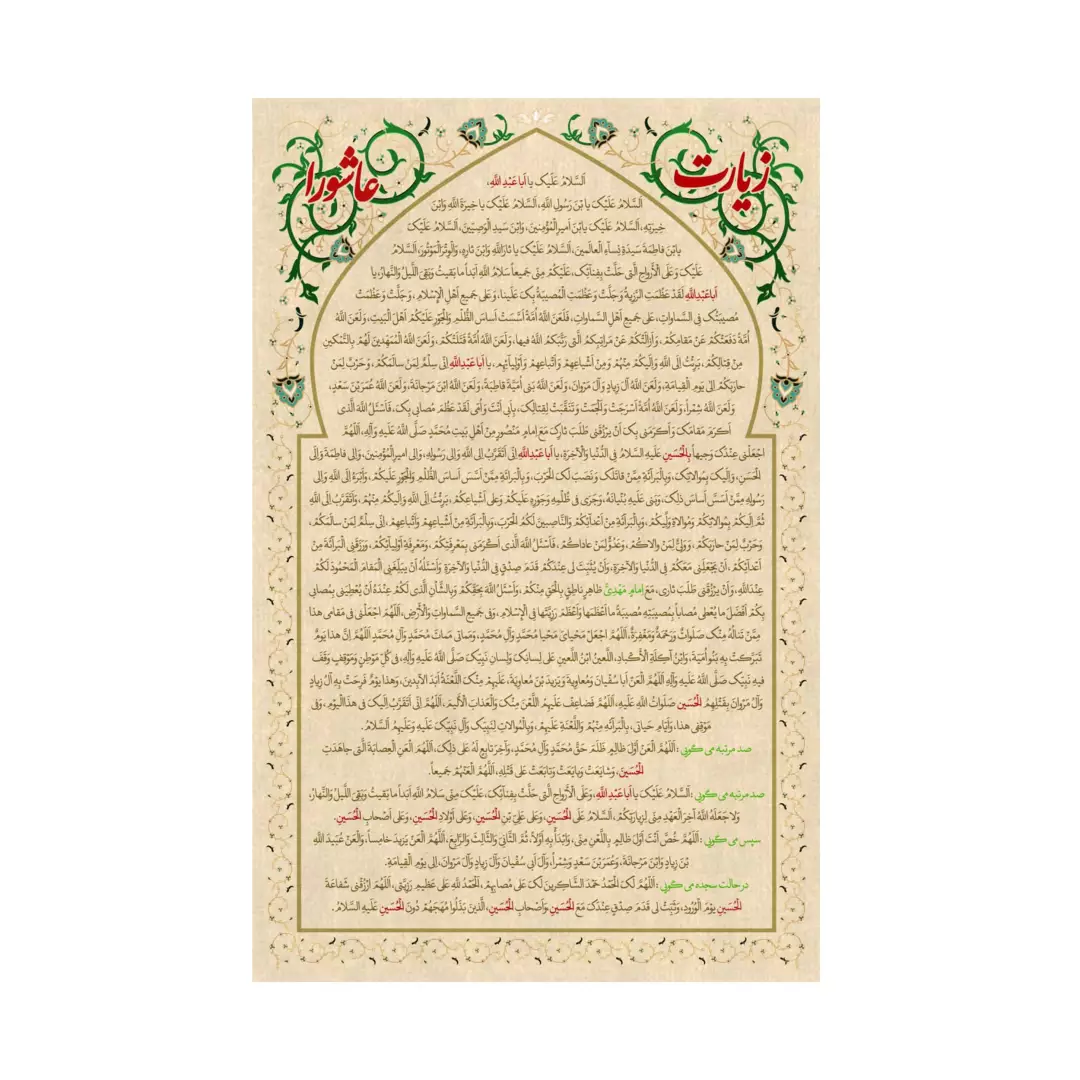 زیارت عاشورا
اَلسَّلامُ عَلَیْکَ یا اَباعَبْدِاللَّهِ،
اَلسَّلامُ عَلَیْکَ یَابْنَ رَسُولِ اللَّهِ، اَلسَّلامُ عَلَیْکَ یا خِیَرَةَ اللَّهِ وَابْنَ
خِیَرَتِهِ، اَلسَّلامُ عَلَیْکَ یَابْنَ اَمیرِالْمُؤْمِنینَ، وَابْنَ سَیِّدِ الْوَصِیّینَ، اَلسَّلامُ عَلَیْکَ
یَابْنَ فاطِمَةَ سَیِّدَةِ نِساَّءِ الْعالَمینَ، اَلسَّلامُ عَلَیْکَ یا ثارَاللَّهِ وَابْنَ ثارِهِ، وَالْوِتْرَالْمَوْتُورَ، اَلسَّلامُ
عَلَیْکَ وَعَلَی الْأَرْواحِ الَّتی حَلَّتْ بِفِنآئِکَ، عَلَیْکُمْ مِنّی جَمیعاً سَلامُ اللَّهِ اَبَداً ما بَقیتُ وَبَقِیَ اللَّیْلُ وَالنَّهارُ، یا
اَباعَبْدِاللَّهِ لَقَدْ عَظُمَتِ الرَّزِیَّةُ وَجَلَّتْ وَعَظُمَتِ الْمُصیبَةُ بِکَ عَلَیْنا، وَعَلی جَمیعِ اَهْلِ الْإِسْلامِ، وَجَلَّتْ وَعَظُمَتْ
مُصیبَتُکَ فِی السَّماواتِ، عَلی جَمیعِ اَهْلِ السَّماواتِ، فَلَعَنَ اللَّهُ اُمَّةً اَسَّسَتْ اَساسَ الظُّلْمِ وَالْجَوْرِ عَلَیْکُمْ اَهْلَ الْبَیْتِ، وَلَعَنَ اللَّهُ
اُمَّةً دَفَعَتْکُمْ عَنْ مَقامِکُمْ، وَاَزالَتْکُمْ عَنْ مَراتِبِکُمُ الَّتی رَتَّبَکُمُ اللَّهُ فیها، وَلَعَنَ اللَّهُ اُمَّةً قَتَلَتْکُمْ، وَلَعَنَ اللَّهُ الْمُمَهِّدینَ لَهُمْ بِالتَّمْکینِ
مِنْ قِتالِکُمْ، بَرِئْتُ اِلَی اللَّهِ وَاِلَیْکُمْ مِنْهُمْ وَمِنْ اَشْیاعِهِمْ وَاَتْباعِهِمْ وَاَوْلِیآئِهِمْ، یا اَباعَبْدِاللَّهِ اِنّی سِلْمٌ لِمَنْ سالَمَکُمْ، وَحَرْبٌ لِمَنْ
حارَبَکُمْ اِلی یَوْمِ الْقِیامَةِ، وَلَعَنَ اللَّهُ آلَ زِیادٍ وَآلَ مَرْوانَ، وَلَعَنَ اللَّهُ بَنی اُمَیَّةَ قاطِبَةً، وَلَعَنَ اللَّهُ ابْنَ مَرْجانَةَ، وَلَعَنَ اللَّهُ عُمَرَبْنَ سَعْدٍ،
وَلَعَنَ اللَّهُ شِمْراً، وَلَعَنَ اللَّهُ اُمَّةً اَسْرَجَتْ وَاَلْجَمَتْ وَتَنَقَّبَتْ لِقِتالِکَ، بِاَبی اَنْتَ وَاُمّی لَقَدْ عَظُمَ مُصابی بِکَ، فَاَسْئَلُ اللَّهَ الَّذی
اَکْرَمَ مَقامَکَ وَاَکْرَمَنی بِکَ اَنْ یَرْزُقَنی طَلَبَ ثارِکَ مَعَ اِمامٍ مَنْصُورٍ مِنْ اَهْلِ بَیْتِ مُحَمَّدٍ صَلَّی اللَّهُ عَلَیْهِ وَآلِهِ، اَللّهُمَّ
اجْعَلْنی عِنْدَکَ وَجیهاً بِالْحُسَیْنِ عَلَیْهِ السَّلامُ فِی الدُّنْیا وَالْآخِرَةِ، یا اَباعَبْدِاللَّهِ اِنّی اَتَقَرَّبُ اِلَی اللَّهِ وَاِلی رَسُولِهِ، وَاِلی امیرِالْمُؤْمِنینَ، وَاِلی فاطِمَةَ وَاِلَی
الْحَسَنِ، وَاِلَیْکَ بِمُوالاتِکَ، وَبِالْبَرائَةِ مِمَّنْ قاتَلَکَ وَنَصَبَ لَکَ الْحَرْبَ، وَبِالْبَرائَةِ مِمَّنْ اَسَّسَ اَساسَ الظُّلْمِ وَالْجَوْرِ عَلَیْکُمْ، وَاَبْرَءُ اِلَی اللَّهِ وَاِلی
رَسُولِهِ مِمَّنْ اَسَسَّ اَساسَ ذلِکَ، وَبَنی عَلَیْهِ بُنْیانَهُ، وَجَری فی ظُلْمِهِ وَجَوْرِهِ عَلَیْکُمْ وَعَلی اَشْیاعِکُمْ، بَرِئْتُ اِلَی اللَّهِ وَاِلَیْکُمْ مِنْهُمْ، وَاَتَقَرَّبُ اِلَی اللَّهِ
ثُمَّ اِلَیْکُمْ بِمُوالاتِکُمْ وَمُوالاةِ وَلِیِّکُمْ، وَبِالْبَرآئَةِ مِنْ اَعْدآئِکُمْ وَالنَّاصِبینَ لَکُمُ الْحَرْبَ، وَبِالْبَرآئَةِ مِنْ اَشْیاعِهِمْ وَاَتْباعِهِمْ، اِنّی سِلْمٌ لِمَنْ سالَمَکُمْ،
وَحَرْبٌ لِمَنْ حارَبَکُمْ، وَوَلِیٌّ لِمَنْ والاکُمْ، وَعَدُوٌّ لِمَنْ عاداکُمْ، فَاَسْئَلُ اللَّهَ الَّذی اَکْرَمَنی بِمَعْرِفَتِکُمْ، وَمَعْرِفَةِ اَوْلِیآئِکُمْ، وَرَزَقَنِی الْبَرآئَةَ مِنْ
اَعْدآئِکُمْ، اَنْ یَجْعَلَنی مَعَکُمْ فِی الدُّنْیا وَالْآخِرَةِ، وَاَنْ یُثَبِّتَ لی عِنْدَکُمْ قَدَمَ صِدْقٍ فِی الدُّنْیا وَالْآخِرَةِ وَاَسْئَلُهُ اَنْ یُبَلِّغَنِی الْمَقامَ الْمَحْمُودَ لَکُمْ
عِنْدَاللَّهِ، وَاَنْ یَرْزُقَنی طَلَبَ ثاری، مَعَ اِمامٍ مَهْدِیٍّ ظاهِرٍ ناطِقٍ بِالْحَقِّ مِنْکُمْ، وَاَسْئَلُ اللَّهَ بِحَقِّکُمْ وَبِالشَّاْنِ الَّذی لَکُمْ عِنْدَهُ اَنْ یُعْطِیَنی بِمُصابی
بِکُمْ اَفْضَلَ ما یُعْطی مُصاباً بِمُصیبَتِهِ مُصیبَةً ما اَعْظَمَها وَاَعْظَمَ رَزِیَّتَها فِی الْإِسْلامِ، وَفی جَمیعِ السَّماواتِ وَالْأَرْضِ، اَللّهُمَّ اجْعَلْنی فی مَقامی هذا
مِمَّنْ تَنالُهُ مِنْکَ صَلَواتٌ وَرَحْمَةٌ وَمَغْفِرَةٌ، اَللّهُمَّ اجْعَلْ مَحْیایَ مَحْیا مُحَمَّدٍ وَآلِ مُحَمَّدٍ، وَمَماتی مَماتَ مُحَمَّدٍ وَآلِ مُحَمَّدٍ اَللّهُمَّ اِنَّ هذا یَوْمٌ
تَبَرَّکَتْ بِهِ بَنُو اُمَیَّةَ، وَابْنُ آکِلَةِ الْأَکْبادِ، اللَّعینُ ابْنُ اللَّعینِ عَلی لِسانِکَ وَلِسانِ نَبِیِّکَ صَلَّی اللَّهُ عَلَیْهِ وَآلِهِ، فی کُلِّ مَوْطِنٍ وَمَوْقِفٍ وَقَفَ
فیهِ نَبِیُّکَ صَلَّی اللَّهُ عَلَیْهِ وَآلِهِ اَللّهُمَّ الْعَنْ اَباسُفْیانَ وَمُعاوِیَةَ وَیَزیدَ بْنَ مُعاوِیَةَ، عَلَیْهِمْ مِنْکَ اللَّعْنَةُ اَبَدَ الْآبِدینَ، وَهذا یَوْمٌ فَرِحَتْ بِهِ آلُ زِیادٍ
وَآلُ مَرْوانَ بِقَتْلِهِمُ الْحُسَیْنَ صَلَواتُ اللَّهِ عَلَیْهِ، اَللّهُمَّ فَضاعِفْ عَلَیْهِمُ اللَّعْنَ مِنْکَ وَالْعَذابَ الْأَلیمَ، اَللّهُمَّ اِنّی اَتَقَرَّبُ اِلَیْکَ فی هذَاالْیَوْمِ، وَفی
مَوْقِفی هذا، وَاَیَّامِ حَیاتی، بِالْبَرآئَةِ مِنْهُمْ وَاللَّعْنَةِ عَلَیْهِمْ، وَبِالْمُوالاتِ لِنَبِیِّکَ وَآلِ نَبِیِّکَ عَلَیْهِ وَعَلَیْهِمُ اَلسَّلامُ.
صد مرتبه می گوئی : اَللّهُمَّ الْعَنْ اَوَّلَ ظالِمٍ ظَلَمَ حَقَّ مُحَمَّدٍ وَآلِ مُحَمَّدٍ، وَآخِرَ تابِعٍ لَهُ عَلی ذلِکَ، اَللّهُمَّ الْعَنِ الْعِصابَةَ الَّتی جاهَدَتِ
الْحُسَیْنَ، وَشایَعَتْ وَبایَعَتْ وَتابَعَتْ عَلی قَتْلِهِ، اَللّهُمَّ الْعَنْهُمْ جَمیعاً.
صد مرتبه می گوئی : اَلسَّلامُ عَلَیْکَ یا اَباعَبْدِاللَّهِ، وَعَلَی الْأَرْواحِ الَّتی حَلَّتْ بِفِنآئِکَ، عَلَیْکَ مِنّی سَلامُ اللَّهِ اَبَداً ما بَقیتُ وَبَقِیَ اللَّیْلُ وَالنَّهارُ،
وَلاجَعَلَهُ اللَّهُ آخِرَ الْعَهْدِ مِنّی لِزِیارَتِکُمْ، اَلسَّلامُ عَلَی الْحُسَیْنِ، وَعَلی عَلِیِّ بْنِ الْحُسَیْنِ، وَعَلی اَوْلادِ الْحُسَیْنِ، وَعَلی اَصْحابِ الْحُسَیْنِ.
سپس می گوئی : اَللّهُمَّ خُصَّ اَنْتَ اَوَّلَ ظالِمٍ بِاللَّعْنِ مِنّی، وَابْدَأْ بِهِ اَوَّلاً، ثُمَّ الثَّانِیَ وَالثَّالِثَ وَالرَّابِعَ، اَللّهُمَّ الْعَنْ یَزیدَ خامِساً، وَالْعَنْ عُبَیْدَ اللَّهِ
بْنَ زِیادٍ وَابْنَ مَرْجانَةَ، وَعُمَرَبْنَ سَعْدٍ وَشِمْراً، وَآلَ اَبی سُفْیانَ وَآلَ زِیادٍ وَآلَ مَرْوانَ، اِلی یَوْمِ الْقِیامَةِ.
در حالت سجده می گوئی : اَللّهُمَّ لَکَ الْحَمْدُ حَمْدَ الشَّاکِرینَ لَکَ عَلی مُصابِهِمْ، اَلْحَمْدُ للَّهِ عَلی عَظیمِ رَزِیَّتی، اَللّهُمَّ ارْزُقْنی شَفاعَةَ
الْحُسَیْنِ یَوْمَ الْوُرُودِ، وَثَبِّتْ لی قَدَمَ صِدْقٍ عِنْدَکَ مَعَ الْحُسَیْنِ وَاَصْحابِ الْحُسَیْنِ، الَّذینَ بَذَلُوا مُهَجَهُمْ دُونَ الْحُسَیْنِ عَلَیْهِ السَّلامُ.